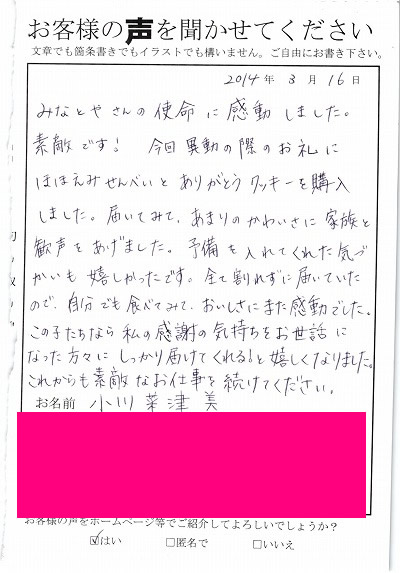 お客様の声を聞かせてください
文章でも箇条書きでもイラストでも構いません。ご自由にお書き下さい。
2014年 3月 16日
みなとやさんの使命に感動しました。
素敵です! 今回異動の際のお礼に
ほほえみせんべいとありがとうクッキーを購入
しました。届いてみて、あまりのかわいさに家族と
歓声をあげました。予備を入れてくれた気づ
かいも嬉しかったです。全て割れずに届いていた
ので、自分でも食べてみて、おいしさにまた感動でした。
この子たちなら私の感謝の気持ちをお世話に
なった方々にしっかり届けてくれる!と嬉しくなりました。
これからも素敵なお仕事を続けてください。
お名前 小川菜津美
お客様の声をホームページ等でご紹介してよろしいでしょうか?
☑はい □匿名で □いいえ